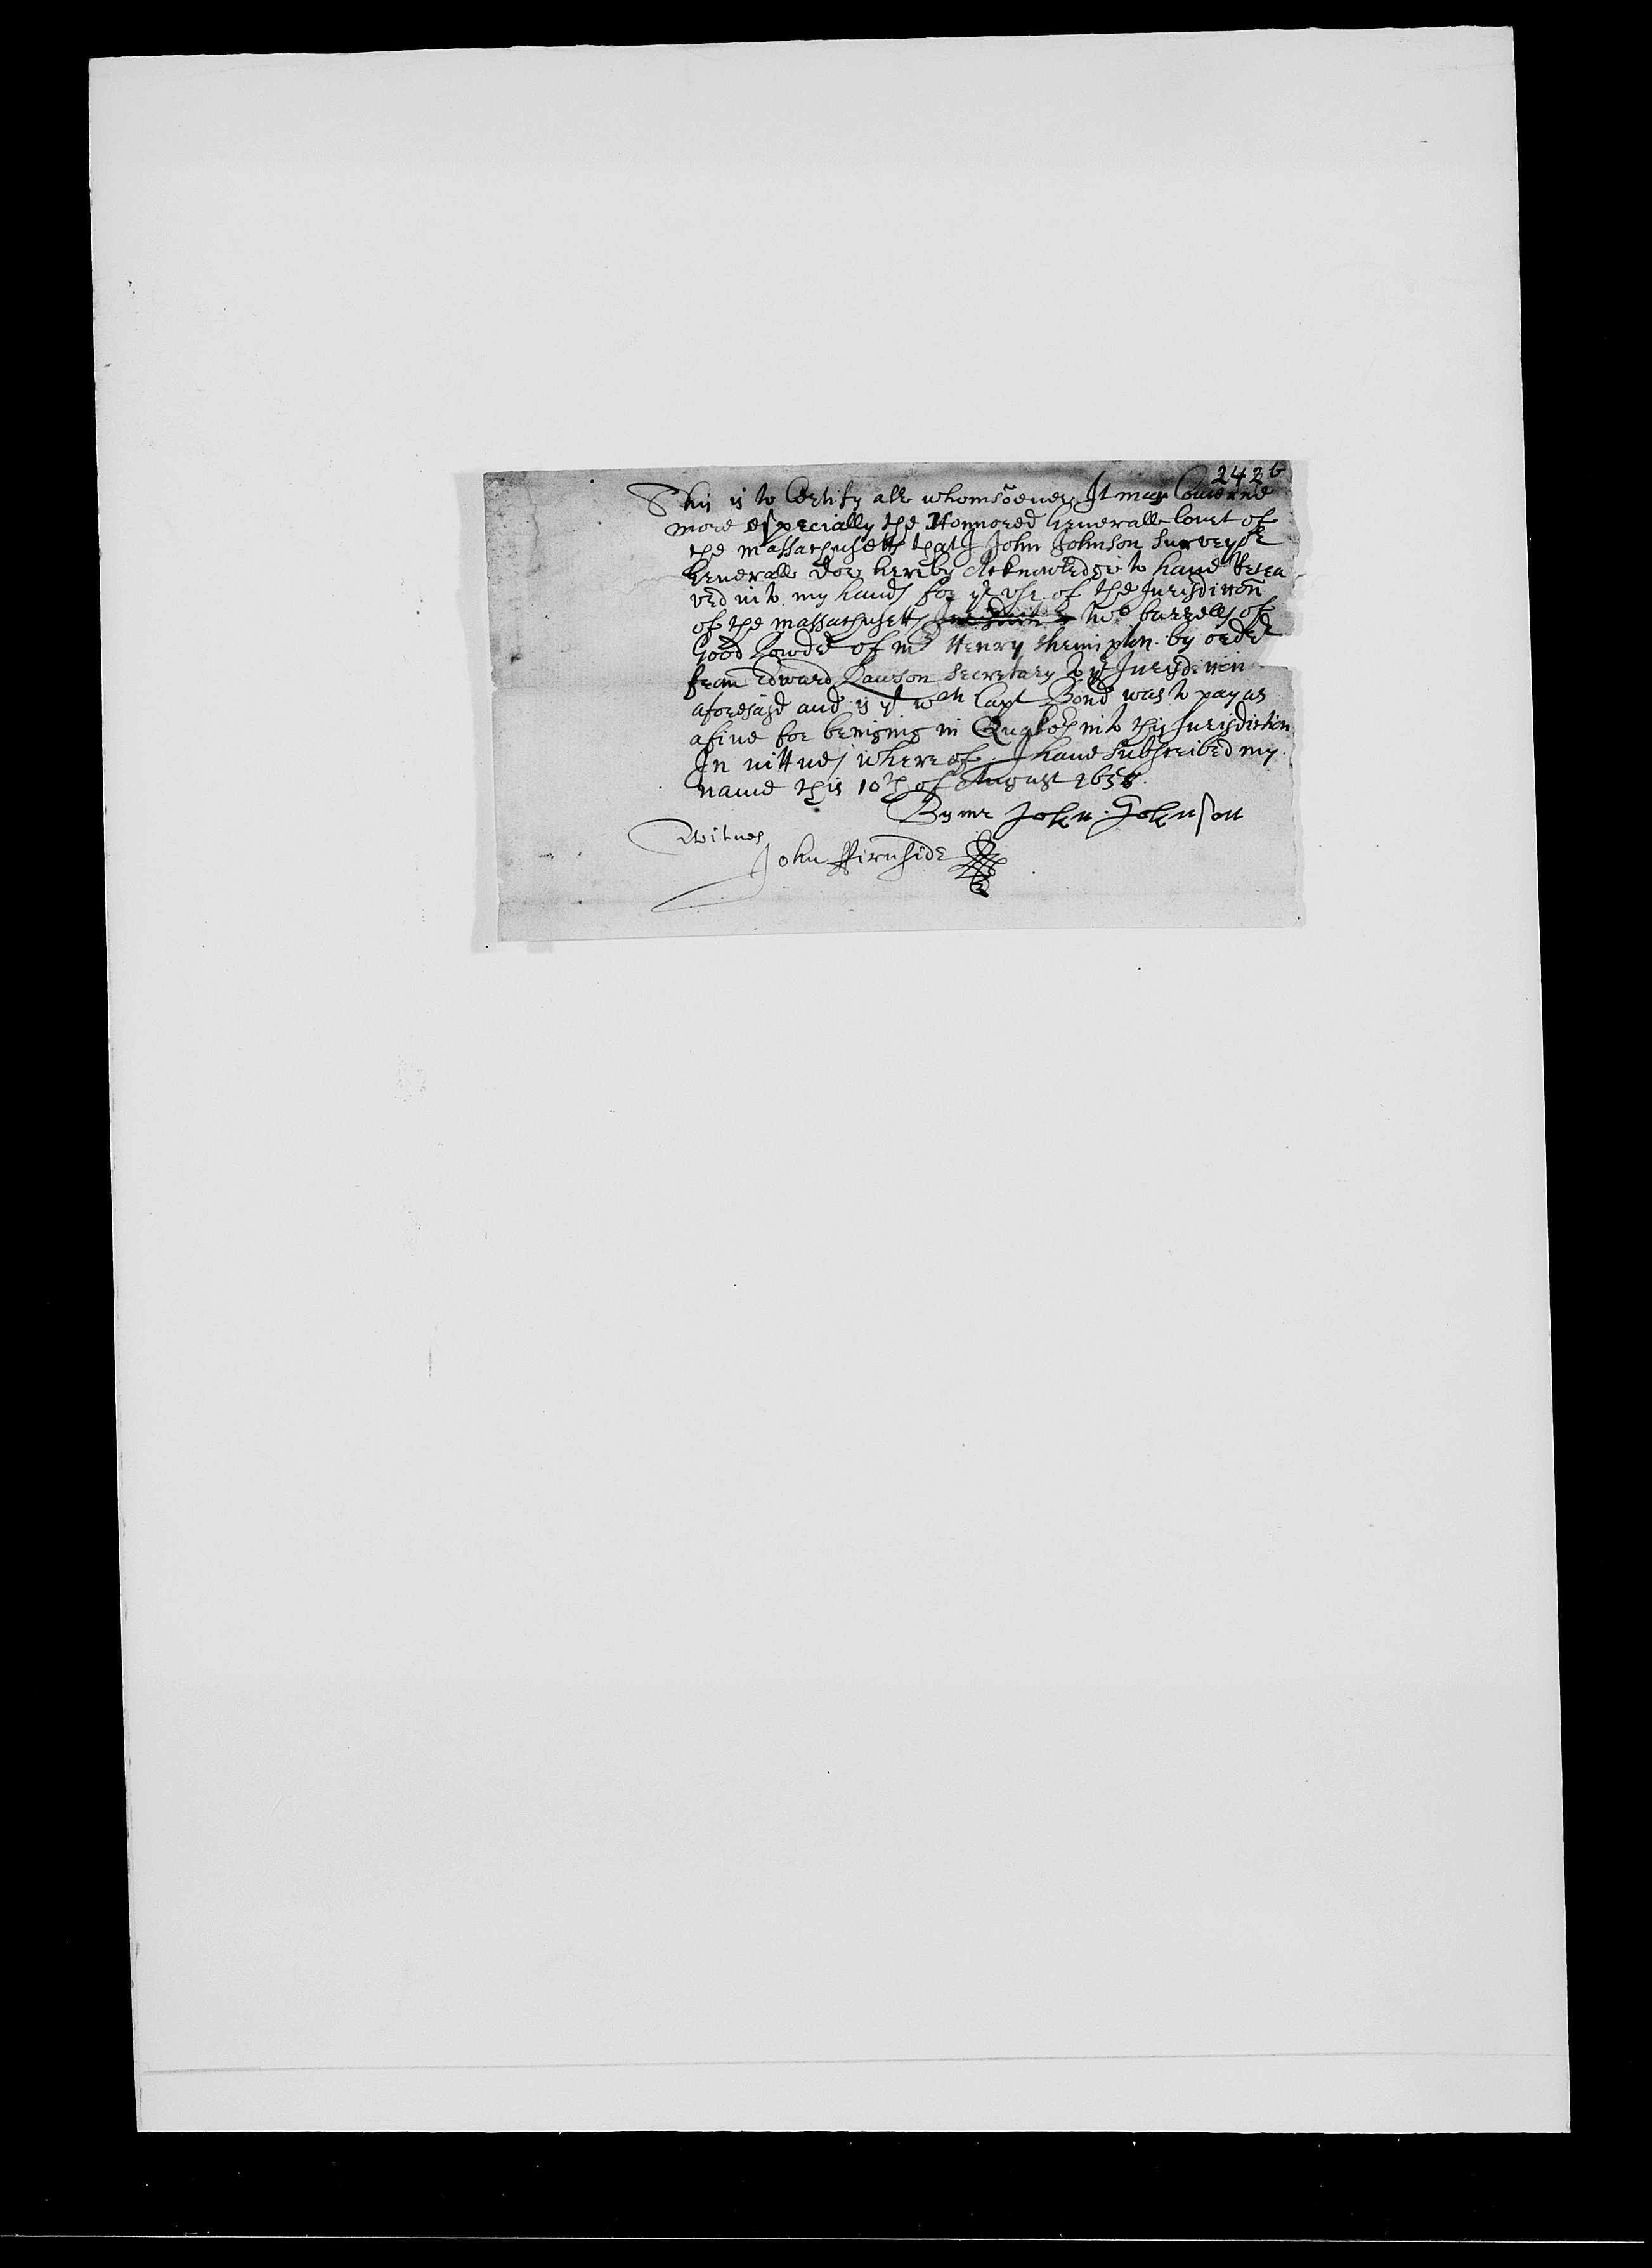 242 b
This is to Certify all whomsoever It may Concerne
more especially the Honnored Generall Court of
the massachusetts that I John Johnson Surveyor
Generall doe hereby Acknowledge to haue Recea
ved into my hands for ye vse of the Jurisdiccon
of the massachusetts two barrells of
Good Powder of mr Henry Shrimpton by order
from Edward Rawson Secretary to ye Jurisdiccon
aforesayd and is yt wch Capt Bond was to pay as
a fine for bringing in Quakers into this Jurisdiction
In wittnes whereof I haue Subscribed my
name this 10th of August 1658.
By me John Johnson
Witnes
John ffirnside